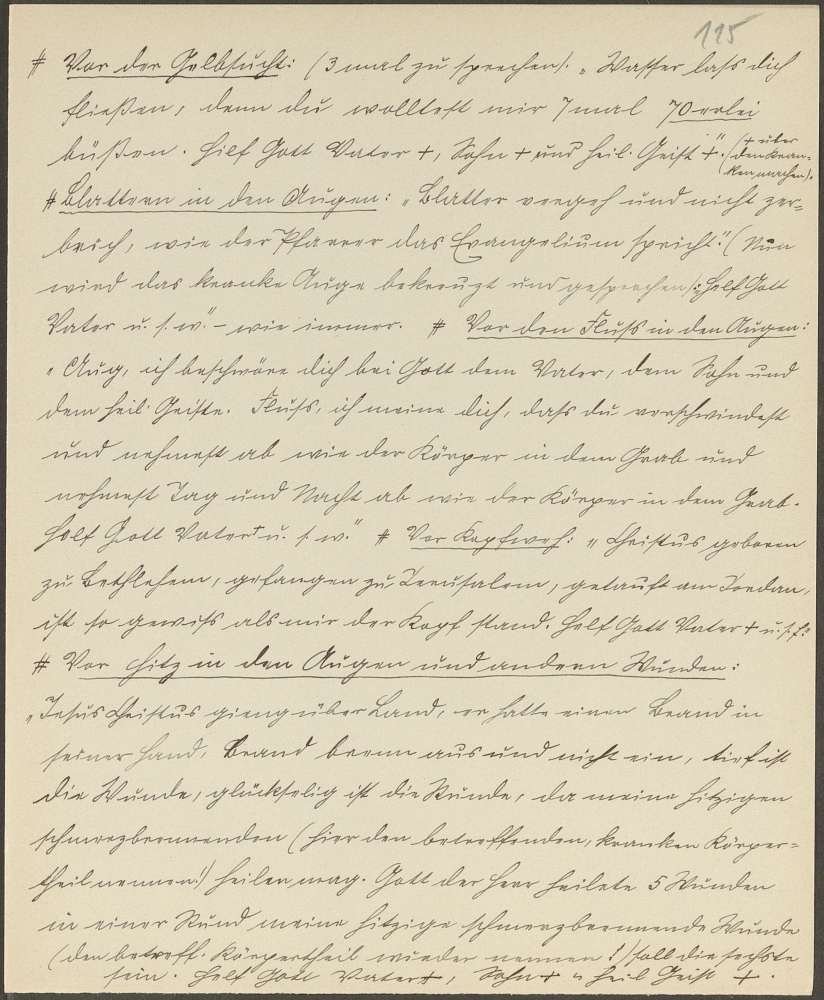 115
# Vor der Gelbsucht: (3 mal zu sprechen). „Wasser lass dich
fließen, denn du wolltest mir 7 mal 70erlei
büßen. Hilf Gott Vater +, Sohn + und heil. Geist +". (+ über
den Kran-
ken machen).
# Blattern in den Augen: „Blatter vergeh und nicht zer=
brich, wie der Pfarrer das Evangelium spricht." (Nun
wird das kranke Auge bekreuzt und gesprochen): „Helf Gott
Vater u. s. w." – wie immer. # Vor den Fluss in den Augen:
„Aug, ich beschwöre dich bei Gott dem Vater, dem Sohn und
dem heil. Geiste. Fluss, ich meine dich, dass du verschwindest
und nehmest ab wie der Körper in dem Grab und
nehmest Tag und Nacht ab wie der Körper in dem Grab.
Helf Gott Vater + u. s. w." # Vor Kopfweh: „Christus geboren
zu Bethlehem, gefangen zu Jerusalem, getauft am Jordan,
ist so gewiss als mir der Kopf stand. Helf Gott Vater + u. s. f."
# Vor Hitz in den Augen und andern Wunden:
„Jesus Christus gieng über Land, er hatte einen Brand in
seiner Hand, Brand brenn aus und nicht ein, tief ist
die Wunde, glückselig ist die Stunde, da meine hitzigen
schmerzbrennenden (hier den betreffenden, kranken Körper=
theil nennen!) heilen mag. Gott der Herr heilete 5 Wunden
in einer Stund meine hitzige schmerzbrennende Wunde
(den betreff. Körpertheil wieder nennen!) soll die sechste
sein. Helf Gott Vater +, Sohn + u heil Geist +.